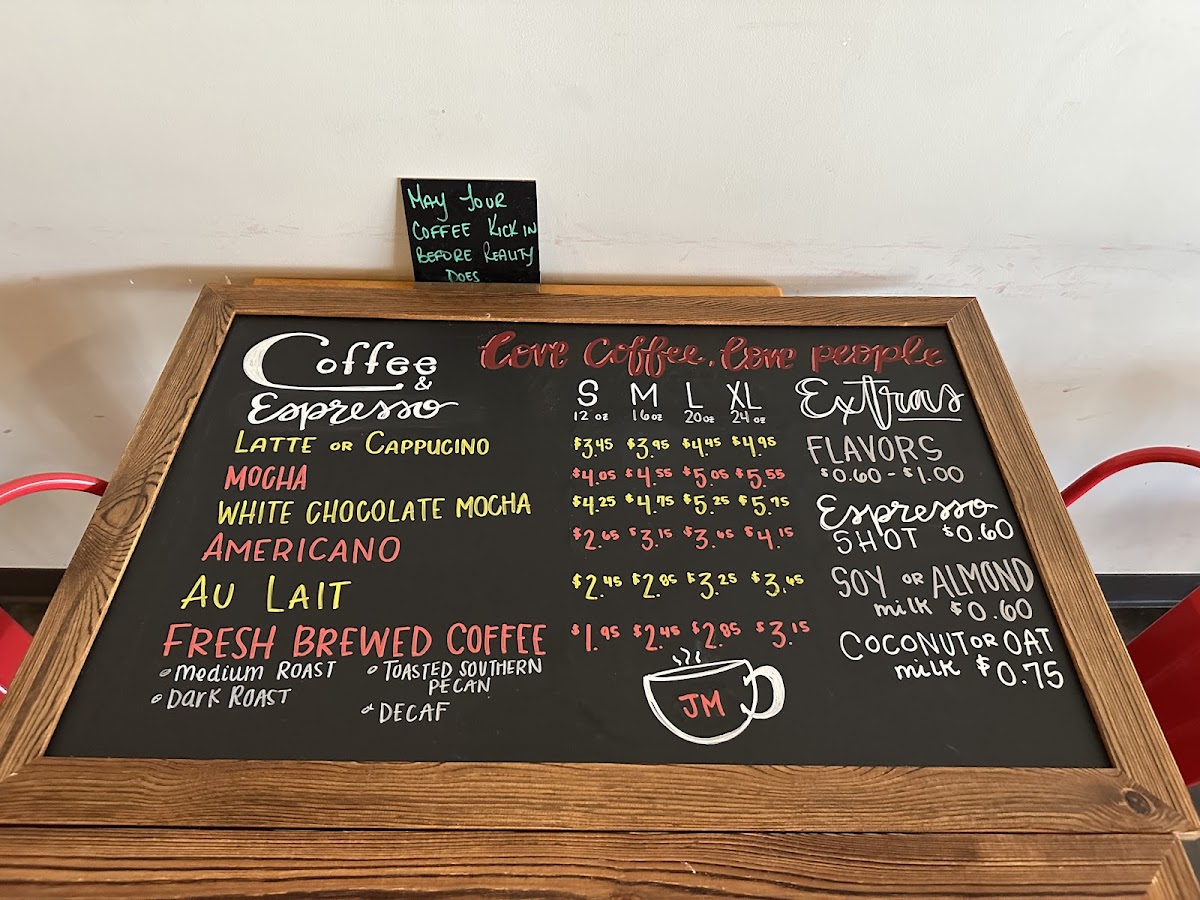 MAY YOUR
COFFEE KICK IN
BEFORE REALITY
DOES
Coffee
&
Espresso
Love Coffee, love people
S M L XL
12 oz 16 oz 20 oz 24 oz
LATTE OR CAPPUCINO $3.45 $3.95 $4.45 $4.95
MOCHA $4.05 $4.55 $5.05 $5.55
WHITE CHOCOLATE MOCHA $4.25 $4.75 $5.25 $5.75
AMERICANO $2.65 $3.15 $3.65 $4.15
AU LAIT $2.45 $2.85 $3.25 $3.65
FRESH BREWED COFFEE $1.95 $2.45 $2.85 $3.15
Medium ROAST
DARK ROAST
TOASTED SOUTHERN
PECAN
DECAF
JM
Extras
FLAVORS
$0.60 - $1.00
Espresso
SHOT $0.60
SOY OR ALMOND
milk $0.60
COCONUT OR OAT
milk $0.75